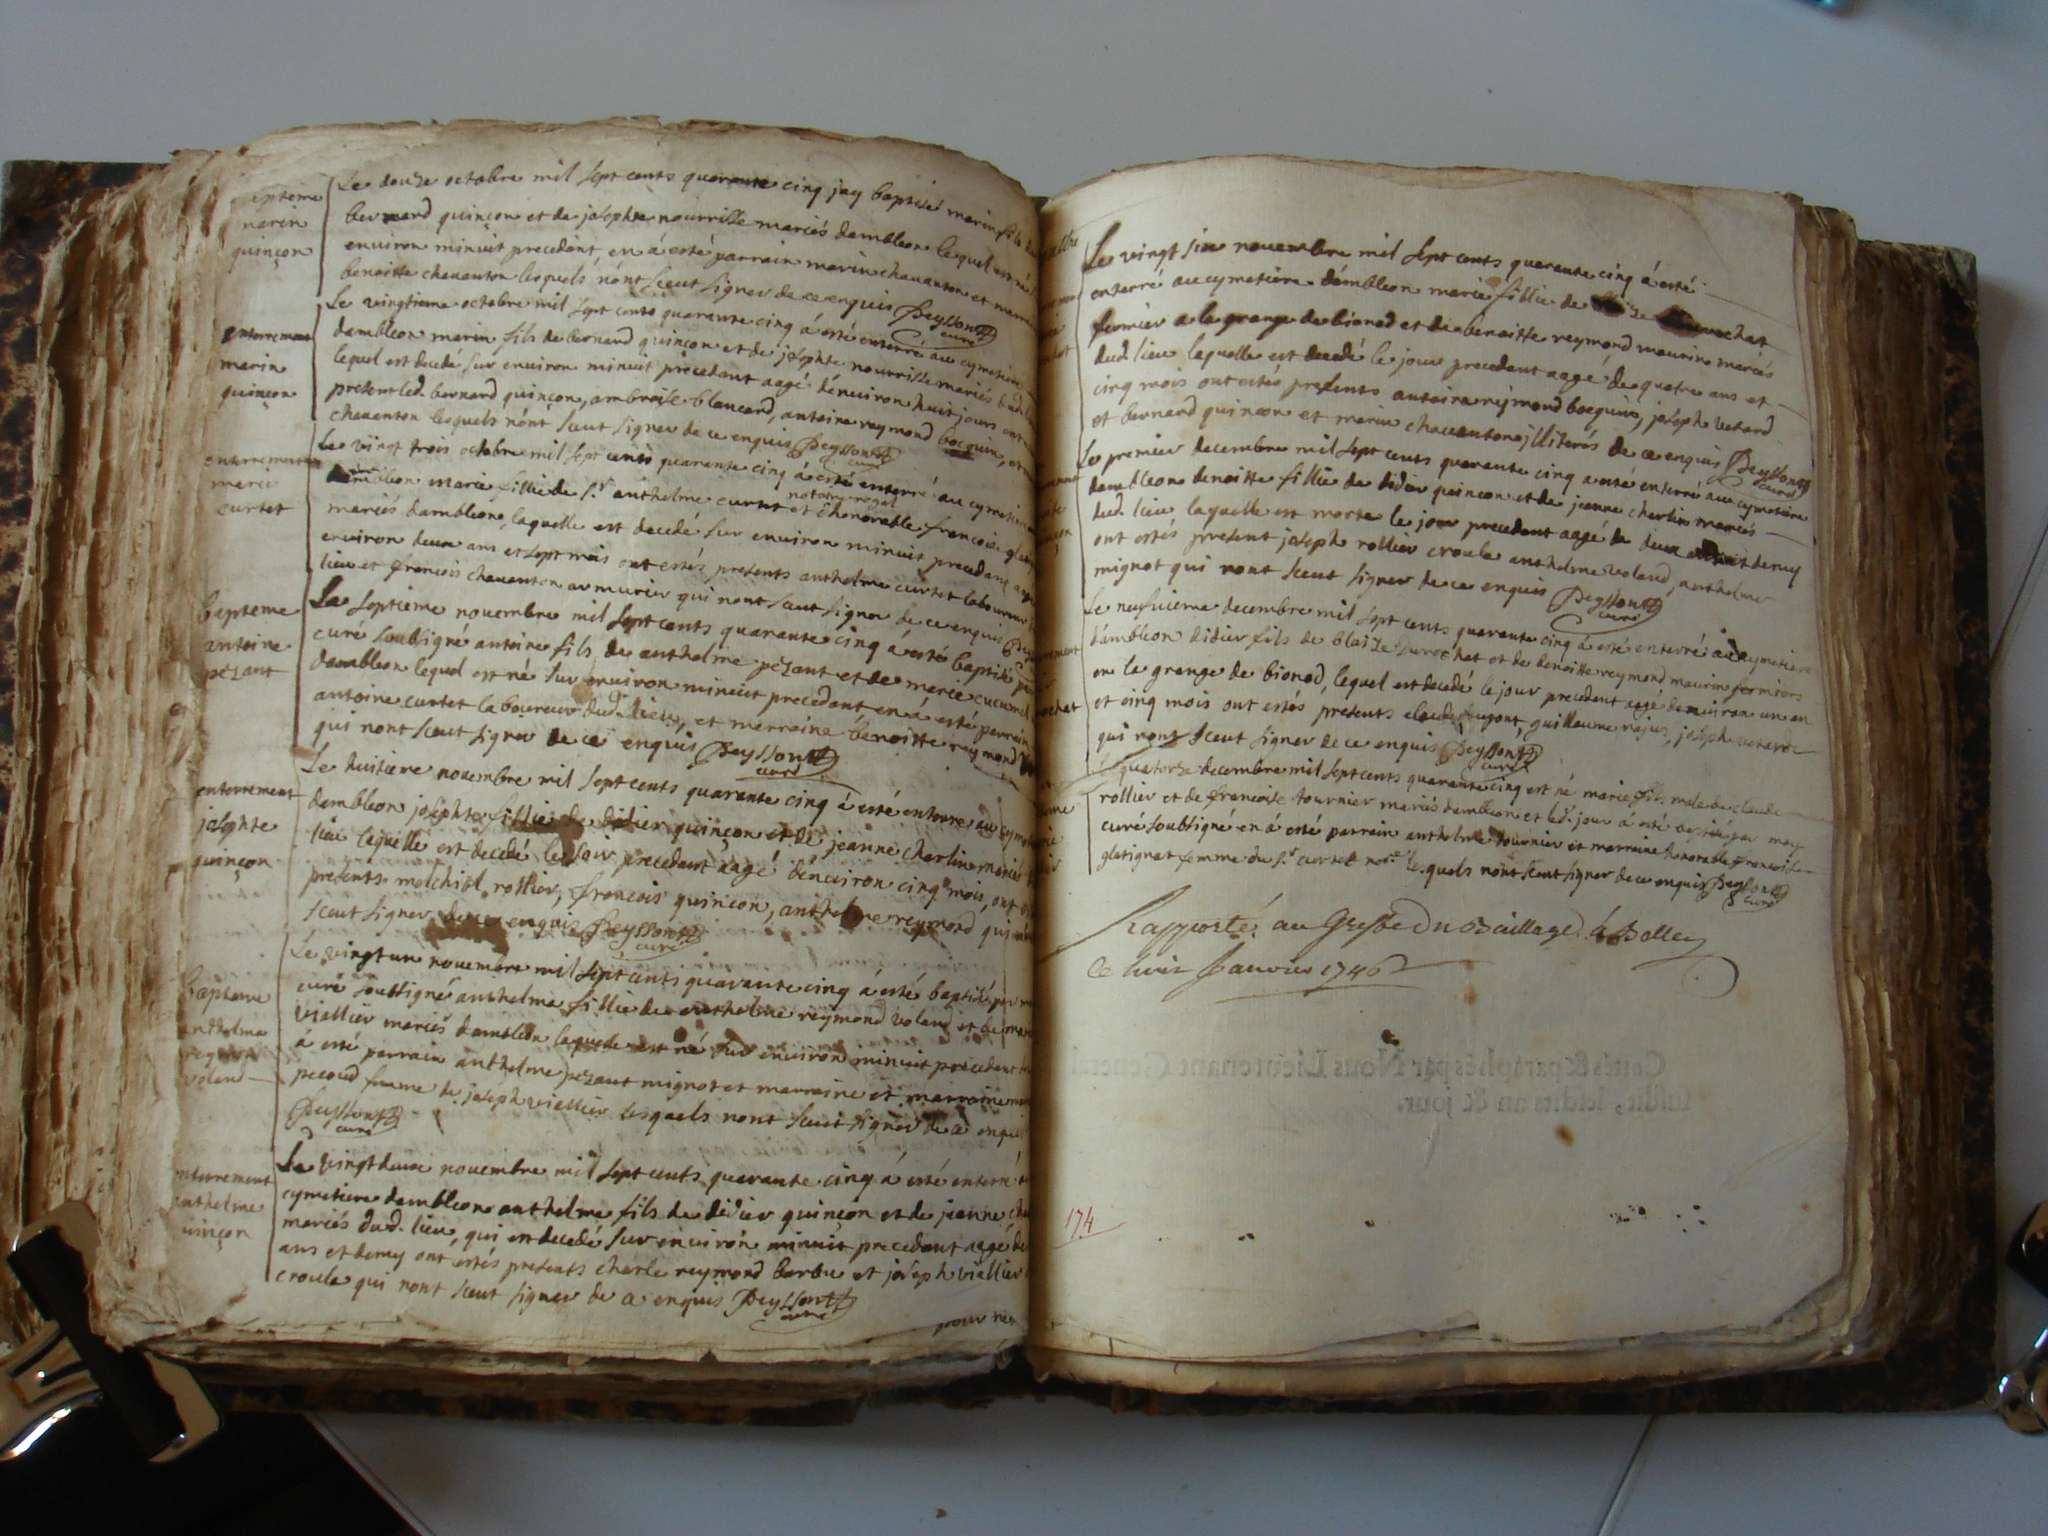 bapteme
marin
quinçon
Le douze octobre mil sept cents quarante cinq jay baptisé marin fils de
bernard quinçon et de josephte nourrisse mariés dambleon lequel est né
environ minuit precedant, en á esté parrain marin chavanton et marraine
benoitte chavanton lesquels nónt sceut signer de ce enquis Peysson
curé
enterrement
marin
quinçon
Le vingtieme octobre mil sept cents quarante cinq á esté enterré au cymetiere
dambleon marin fils de bernard quinçon et de josephte nourrisse mariés dud.
lequel est decedé sur environ minuit precedant aagé dénviron huit jours ont
present led. bernard quinçon, ambroise blancard, antoine reymond bocquin, et
chavanton lesquels nónt sceut signer de ce enquis Peysson
curé
enterrement
marie
curtet
Le vingt trois octobre mil sept cents quarante cinq á esté enterré au cymetiere
dambleon marie fillie de s.r anthelme curtet notaire royal et d'honorable françoise
mariés dambleon, laquelle est decedé sur environ minuit precedant
environ deux ans et sept mois ont estés presents anthelme curtet laboureur
lieu et francois chavanton armurier qui nont sceut signer de ce enquis
bapteme
antoine
pezant
Le septieme novembre mil sept cents quarante cinq á esté baptisé
curé soubsigné antoine fils de anthelme pezant et de marie cucumel
dambleon lequel est né sur environ minuit precedant en á esté parrain
antoine curtet laboureur dud. lieu, et marraine benoitte reymond
qui nont sceut signer de ce enquis Peysson
curé
enterrement
josephte
quinçon
Le huitieme novembre mil sept cents quarante cinq á esté enterré au cymetiere
dambleon josephte fillie de didier quinçon et de jeanne cherlin mariés
lieu lequelle est decedé le jour precedant aagé denviron cinq mois, ont
presents melchiol rollier, francois quincon, anthelme reymond qui
sceut signer de ce enquis Peysson
curé
bapteme
anthelma
reymond
voland
Le vingt un novembre mil sept cents quarante cinq á esté baptisé par
curé soubsigné anthelma fillie de anthelme reymond voland et de
viallier mariés dambleon laquelle est né sur environ minuit precedent
á esté parrain anthelme pezant mignot et marraine et marraine
pecoud femme de joseph viallier lesquels nont sceut signer de ce enquis
Peysson
curé
enterrement
anthelme
quinçon
Le vingt deux novembre mil sept cents quarante cinq á esté enterré
cymetiere dambleon anthelme fils de didier quinçon et de jeanne
mariés dud. lieu, qui est decedé sur environ minuit precedant aagé de
ans et demy ont estés presents charle reymond barbu et joseph viallier
croula qui nont sceut signer de ce enquis Peysson
curé
pour
Le vingt six novembre mil sept cents quarante cinq á esté
enterré au cymetiere dámbleon marie fillie de
fermier a la grange de bionod et de benoitte reymond maurin mariés
dud. lieu laquelle est decedé le jour precedent aagé de quatre ans et
cinq mois ont estés presents antoine reymond bocquin, joseph vetard
et bernard quincon et marin chavanton jlliterés de ce enquis Peysson
curé
Le premier decembre mil sept cents quarante cinq a esté enterré au cymetiere
dambleon benoitte fillie de didier quincon et de jeanne cherlin mariés
dud. lieu laquelle est morte le jour precedent aagé de deux et demy
ont estés present joseph rollier croula anthelme voland, anthelme
mignot qui nont sceut signer de ce enquis Peysson
curé
Le neufvieme decembre mil sept cents quarante cinq á esté enterré au cymetiere
dámbleon didier fils de blaize et de benoitte reymond maurin fermiers
en la grange de bionod, lequel est decedé le jour precedent aagé denviron un an
et cinq mois ont estés presents claude, guillaume, joseph vetard
qui nont sceut signer de ce enquis Peysson
curé
Le quatorze decembre mil sept cents quarante cinq est né marie de claude
rollier et de francoise tournier mariés dambleon et led. jour á esté par moy
curé soubsigné en á esté parrain anthelme tournier et marraine honorable francoise
glatignat femme du s.r curtet no.re lesquels nónt sceut signer de ce enquis Peysson
curé
Rapporté au Greffe du Bailliage de Belley
Ce huit Janvier 1746
Cottés & paraphés par Nous Lieutenant General
susdit, lesdits an & jour.
174